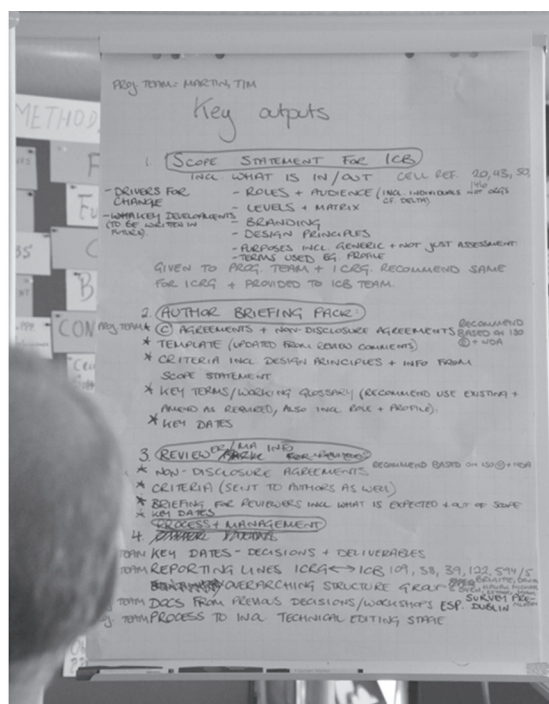 PROJ TEAM: MARTIN, TIM
Key outputs
METHOD
1. SCOPE STATEMENT FOR ICB
INCL. WHAT IS IN/OUT CELL REF. 20, 43, 50,
146
- DRIVERS FOR CHANGE
- WHAT KEY DEVELOPMENTS
(TO BE WRITTEN IN FUTURE).
- ROLES + AUDIENCE (INCL. INDIVIDUALS NOT ORG'S
CF. DELTA)
- LEVELS + MATRIX
- BRANDING
- DESIGN PRINCIPLES
- PURPOSES INCL. GENERIC + NOT JUST ASSESSMENT
- TERMS USED EG. PROFILE
GIVEN TO PROG. TEAM + ICRG. RECOMMEND SAME
FOR ICRG + PROVIDED TO ICB TEAM.
2. AUTHOR BRIEFING PACK:
PROJ TEAM * © AGREEMENTS + NON-DISCLOSURE AGREEMENTS
RECOMMEND
BASED ON ISO
© + NDA
* TEMPLATE (UPDATED FROM REVIEW COMMENTS)
* CRITERIA INCL DESIGN PRINCIPLES + INFO FROM
SCOPE STATEMENT
* KEY TERMS/WORKING GLOSSARY (RECOMMEND USE EXISTING +
AMEND AS REQUIRED, ALSO INCL ROLE + PROFILE).
* KEY DATES
3. REVIEWER/MA INFO
* NON-DISCLOSURE AGREEMENTS RECOMMEND BASED ON ISO © + NDA
* CRITERIA (SENT TO AUTHORS AS WELL)
* BRIEFING FOR REVIEWERS INCL WHAT IS EXPECTED + OUT OF SCOPE
* KEY DATES
4. PROCESS + MANAGEMENT
TEAM KEY DATES - DECISIONS + DELIVERABLES
TEAM REPORTING LINES ICRG ↔ ICB 109, 38, 39, 122, 594/5
OVERARCHING STRUCTURE GROUP
TEAM DOCS FROM PREVIOUS DECISIONS/WORKSHOPS ESP. DUBLIN
SURVEY PRE-
TEAM PROCESS TO INCL TECHNICAL EDITING STAGE